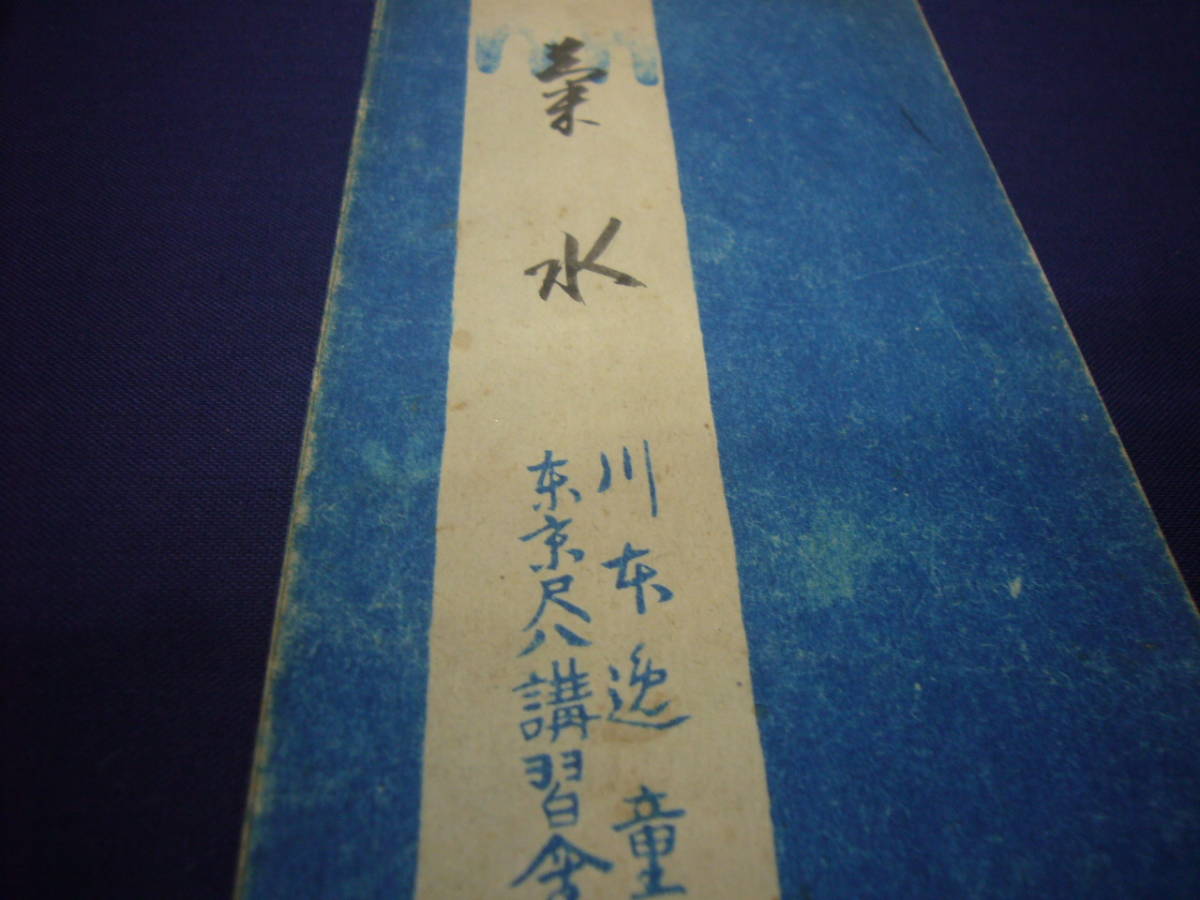 菊水
川本逸童
东京尺八講習会